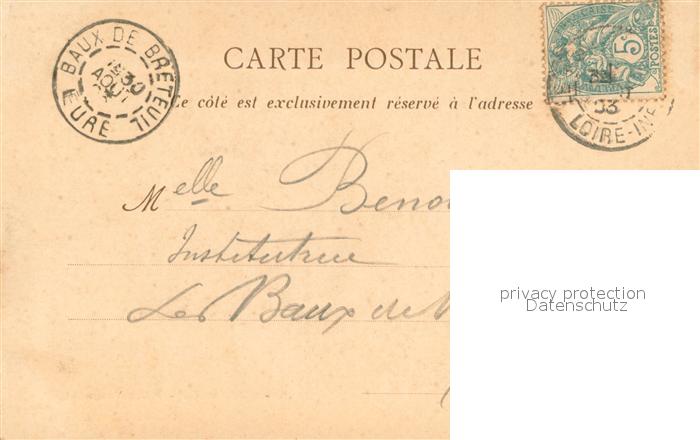 BAUX DE BRETEUIL
30
AOUT
EURE
CARTE POSTALE
Ce côté est exclusivement réservé à l'adresse
5
POSTES
03
LOIRE-INF
Melle
Institutrice
Les Baux de
privacy protection
Datenschutz